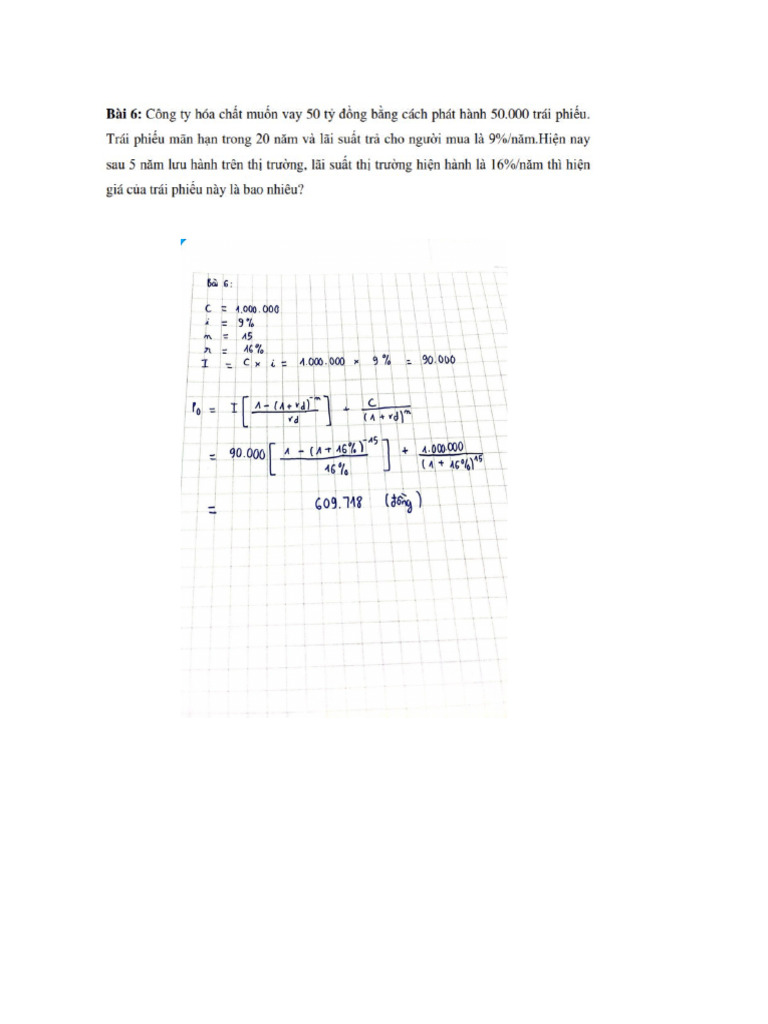 Bài 6: Công ty hóa chất muốn vay 50 tỷ đồng bằng cách phát hành 50.000 trái phiếu.
Trái phiếu mãn hạn trong 20 năm và lãi suất trả cho người mua là 9%/năm.Hiện nay
sau 5 năm lưu hành trên thị trường, lãi suất thị trường hiện hành là 16%/năm thì hiện
giá của trái phiếu này là bao nhiêu?
Bài 6:
C = 1.000.000
i = 9%
n = 15
r = 16%
I = C × i = 1.000.000 × 9% = 90.000
P₀ = I [ (1-(1+rd)⁻ⁿ) / rd ] + C / (1+rd)ⁿ
= 90.000 [ (1 - (1+16%)⁻¹⁵) / 16% ] + 1.000.000 / (1 + 16%)¹⁵
= 609.718 (đồng)